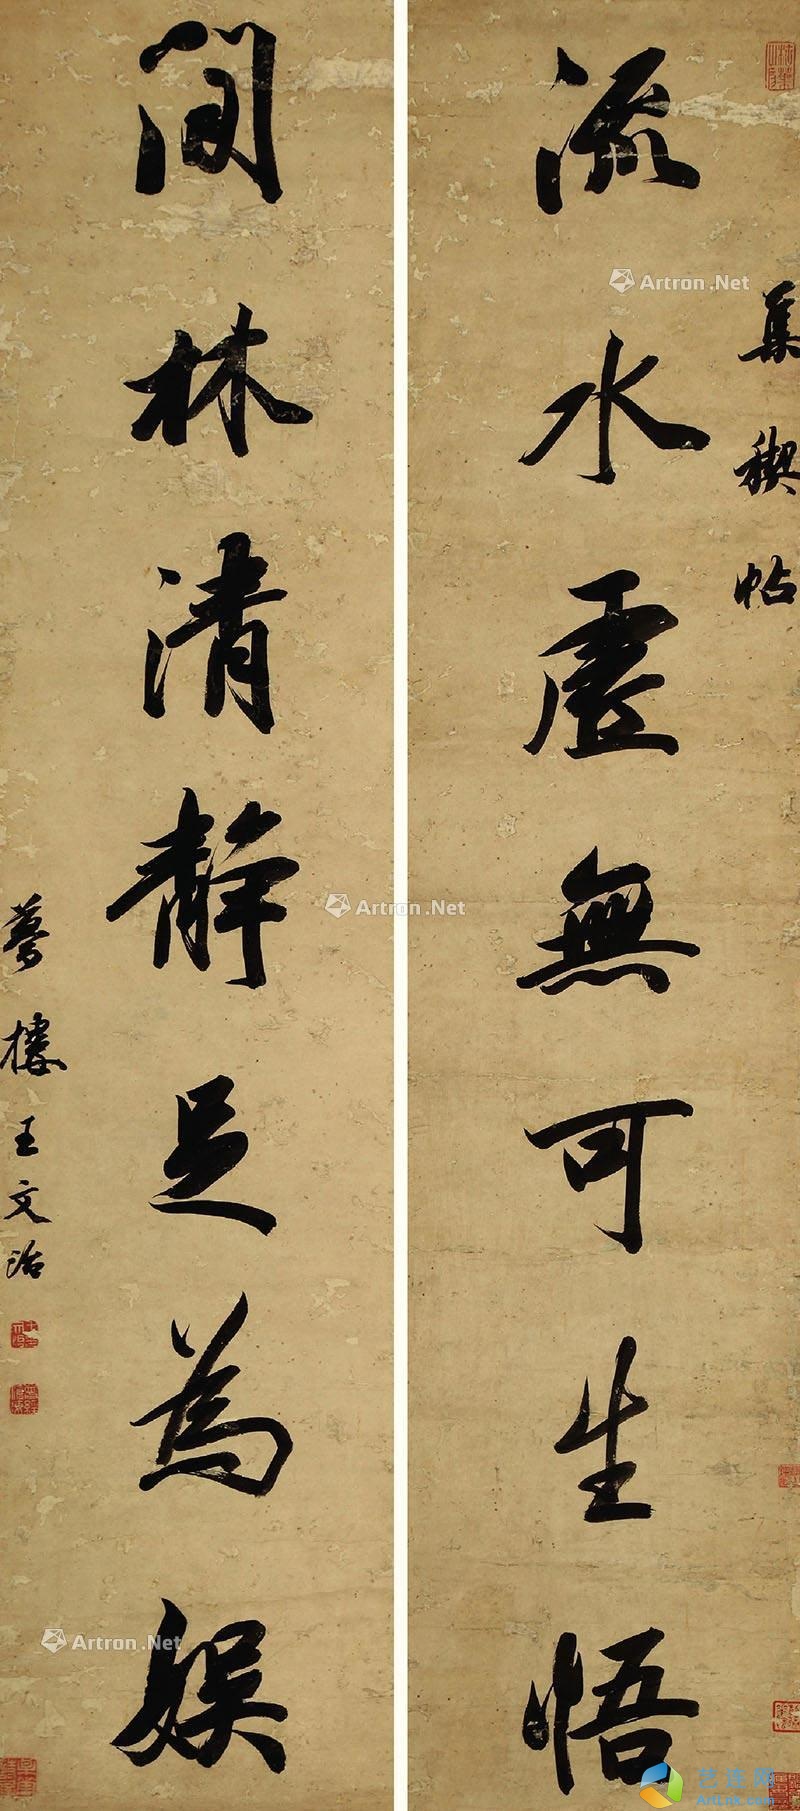 集禊帖
流水虛無可生悟
閒林清靜足為娛
夢樓王文治
Artron.Net
Artron.Net
Artron.Net
艺连网
ArtLnk.com